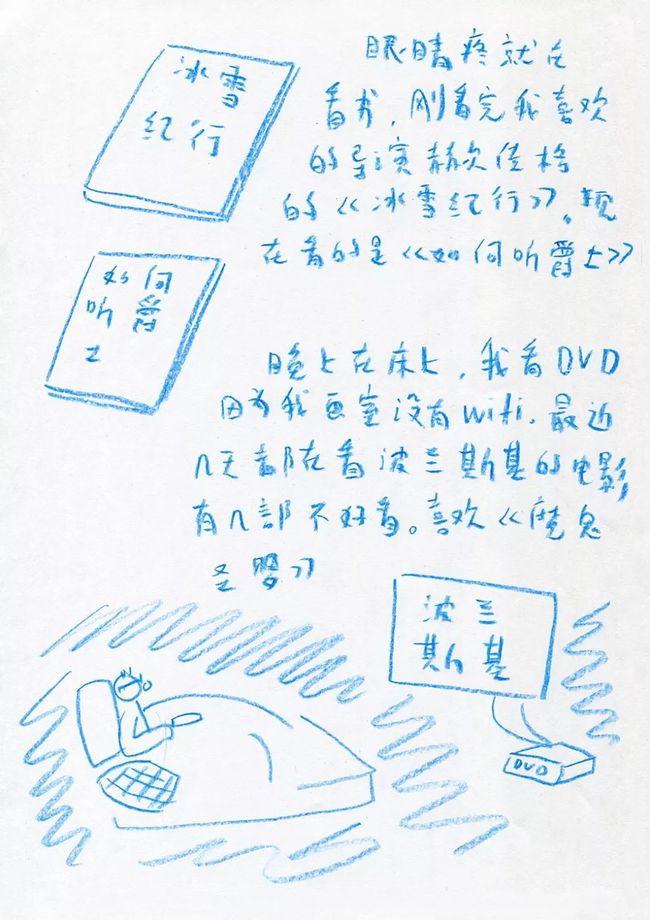 冰雪
纪行
眼睛疼就在
看书,刚看完我喜欢
的导演赫尔佐格
的《冰雪纪行》。现
在看的是《如何听爵士》
如何
听爵
士
晚上在床上,我看DVD
因为我画室没有wifi.最近
几天都在看波兰斯基的电影,
有几部不好看。喜欢《魔鬼
圣婴》
波兰
斯基
DVD